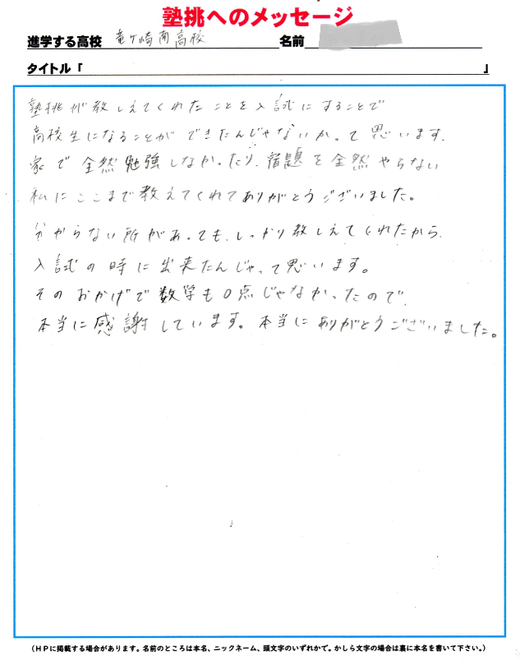 塾挑へのメッセージ
進学する高校 竜ケ崎南高校 名前
タイトル「 」
塾挑が教しえてくれたことを入試にすることで
高校生になることができたんじゃないかって思います。
家で全然勉強しなかったり、宿題を全然やらない
私にここまで教えてくれてありがとうございました。
分からない所があっても、しっかり教しえてくれたから、
入試の時に出来たんじゃって思います。
そのおかげで数学も0点じゃなかったので、
本当に感謝しています。本当にありがとうございました。
(HPに掲載する場合があります。名前のところは本名、ニックネーム、頭文字のいずれかで。かしら文字の場合は裏に本名を書いて下さい。)